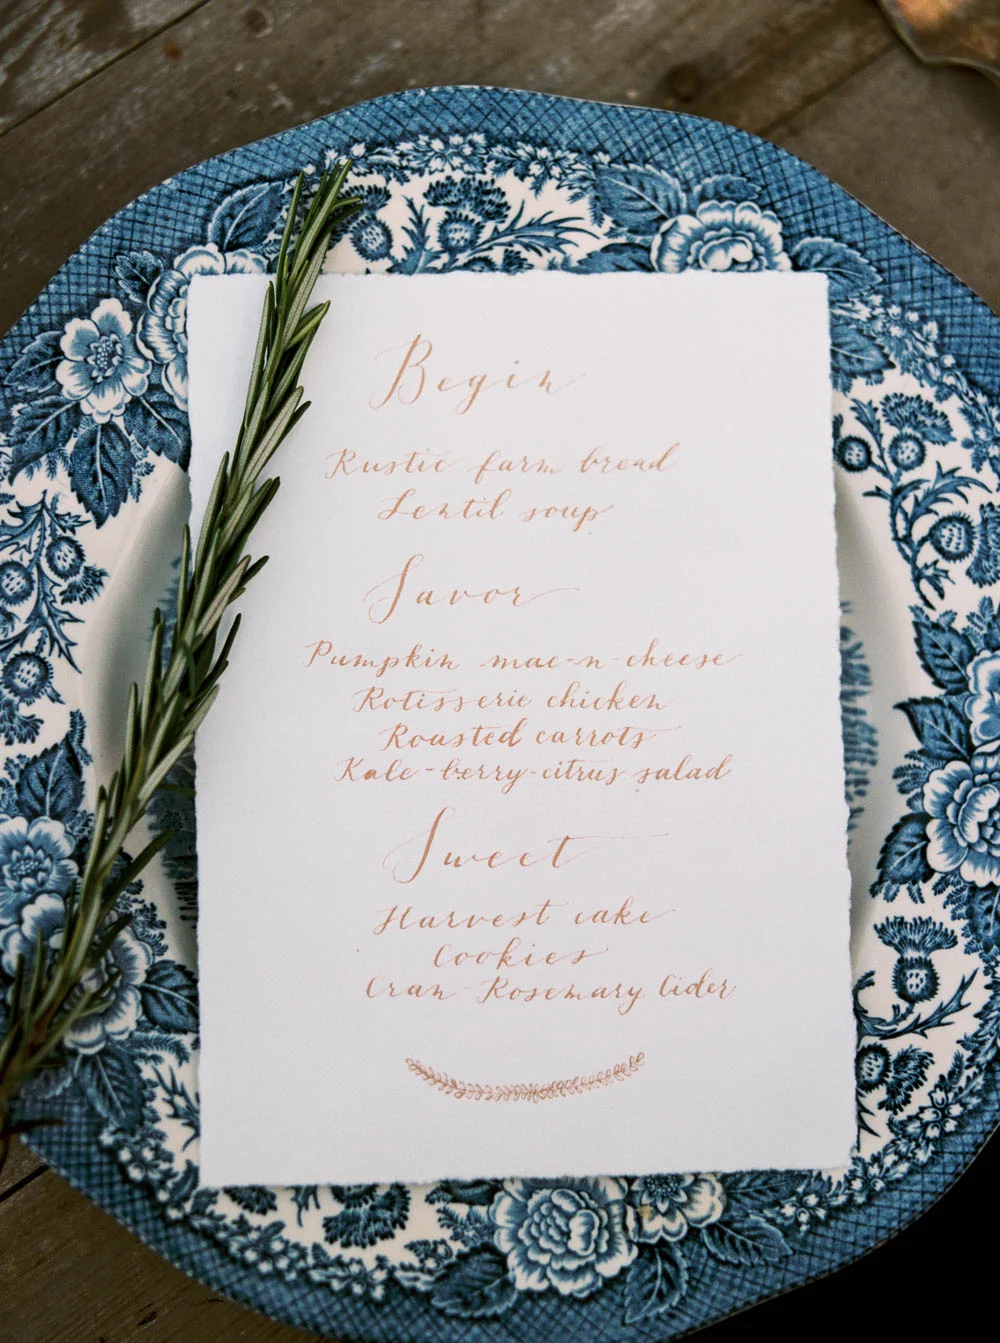 Begin
Rustic farm bread
Lentil soup
Savor
Pumpkin mac-n-cheese
Rotisserie chicken
Roasted carrots
Kale-berry-citrus salad
Sweet
Harvest cake
Cookies
Cran-Rosemary Cider